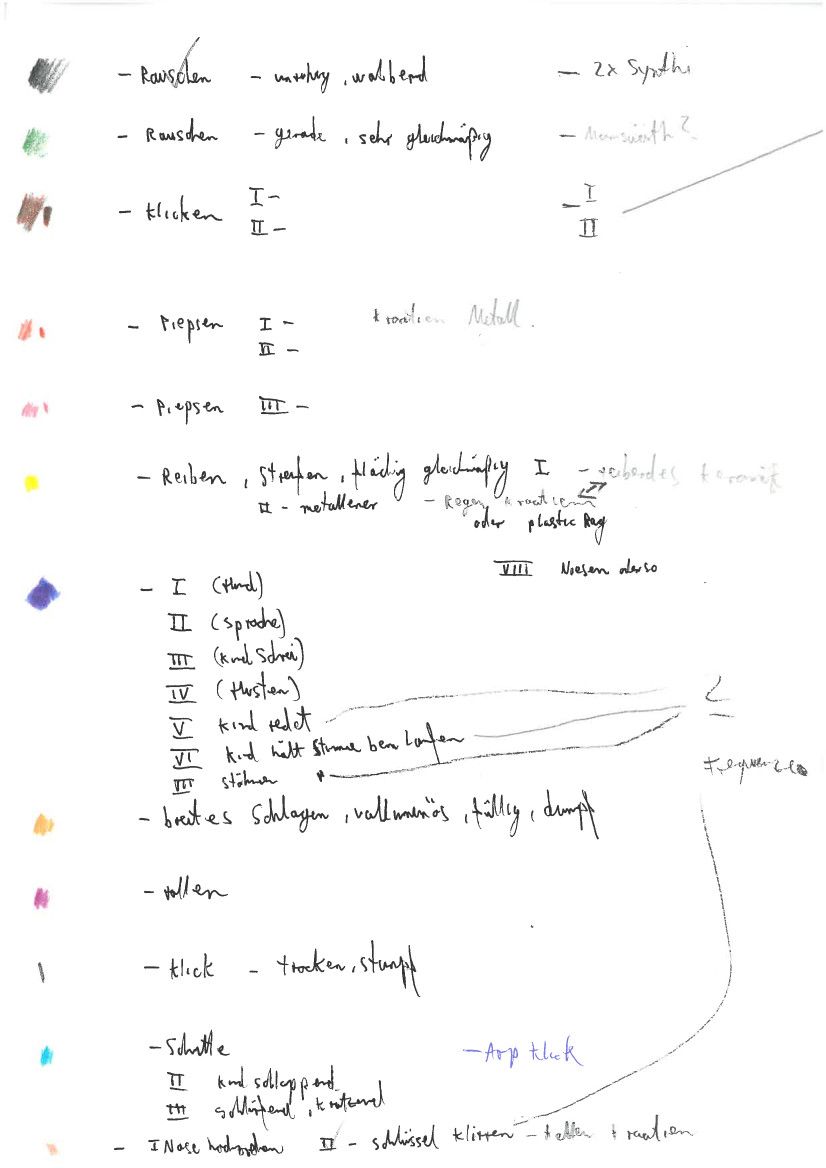 - Rauschen - unruhig, wabbernd - 2x Synthi
- Rauschen - gerade, sehr gleichmäßig -
- Klicken I - - I
II - II
- Piepsen I - Metall.
II -
- Piepsen III -
- Reiben, Streifen, flächig gleichmäßig I -
II - metallener - Regen
oder plastic Bag
VIII Niesen oderso
- I (Hund)
II (Sprache)
III (Kind Schrei)
IV (Husten)
V Kind redet
VI Kind hält Stimme beim Laufen
III stöhnen
Frequenzen
- breites Schlagen, vallumenös, füllig, dumpf
- rollen
- Klick - trocken, stumpf
- Schritte - Arp Klick
II Kind schlappend
III schlürfend, kratzend
- I Nase hochziehen II - schlüssel klirren -